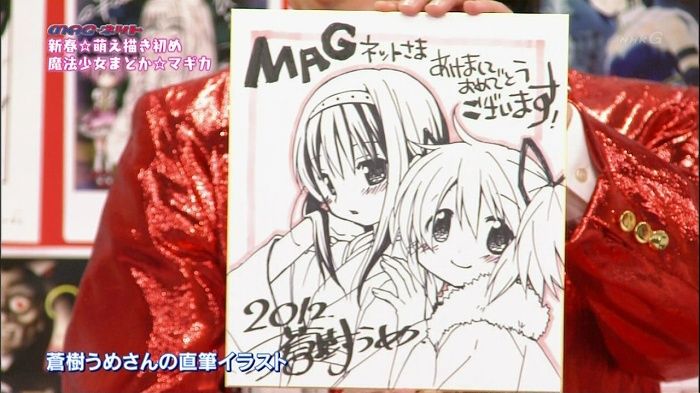 MAG・ネット
新春☆萌え描き初め
魔法少女まどか☆マギカ
NHKG
MAG ネットさま
あけまして
おめでとう
ございます!
2012
蒼樹うめ
蒼樹うめさんの直筆イラスト